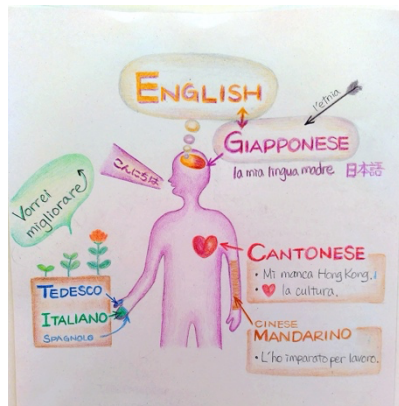 ENGLISH
l'etnia
GIAPPONESE
la mia lingua madre 日本語
こんにちは
Vorrei
migliorare
CANTONESE
• Mi manca Hong Kong.
• la cultura.
TEDESCO
ITALIANO
SPAGNOLO
CINESE
MANDARINO
• L'ho imparato per lavoro.